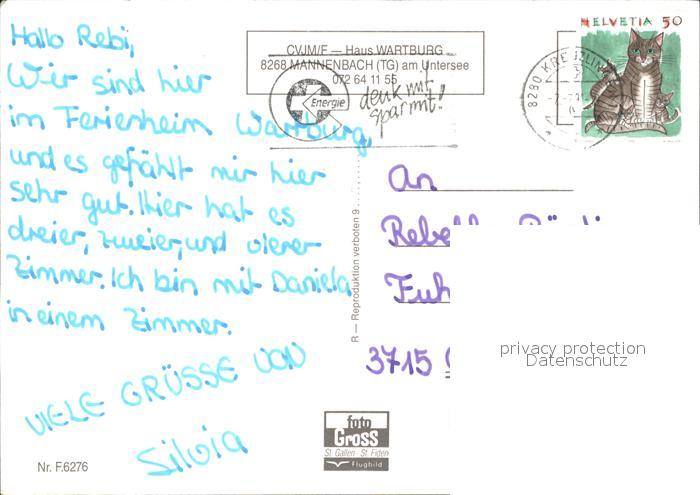 Hallo Rebi,
Wir sind hier
im Ferienheim Wartburg,
und es gefählt mir hier
sehr gut. Hier hat es
dreier, zweier, und vierer
Zimmer. Ich bin mit Daniela
in einem Zimmer.
VIELE GRÜSSE VON
Silvia
Nr. F.6276
CVJM/F — Haus WARTBURG
8268 MANNENBACH (TG) am Untersee
072 64 11 55
Energie
denk mit,
sparmit!
8280 KREUZLINGEN
HELVETIA 50
R — Reproduktion verboten 9
An
3715
foto
Gross
St. Gallen St. Fiden
Flugbild
privacy protection
Datenschutz